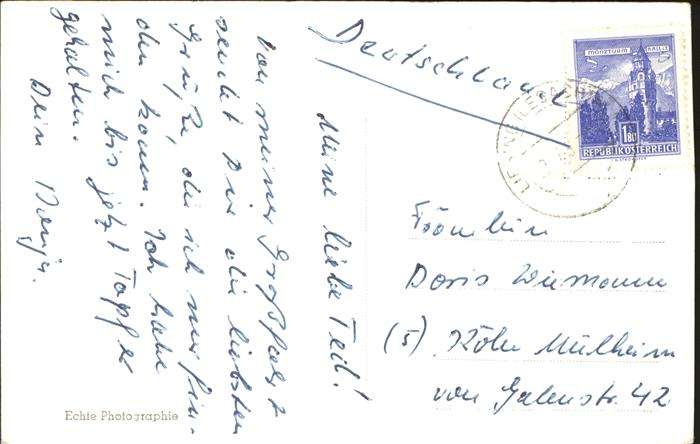 Deutschland
MÜNZTURM HALL i. T.
1.80
REPUBLIK ÖSTERREICH
Meine liebe Teil!
Von meiner Großfahrt
sendet Dir die liebsten
Grüße, die ich nur fin-
den kann. Ich habe
mich bis jetzt Tapfer
gehalten.
Dein
Fräulein
Doris Wiemann
(5) Köln Mülheim
von Galenstr. 42
Echte Photographie